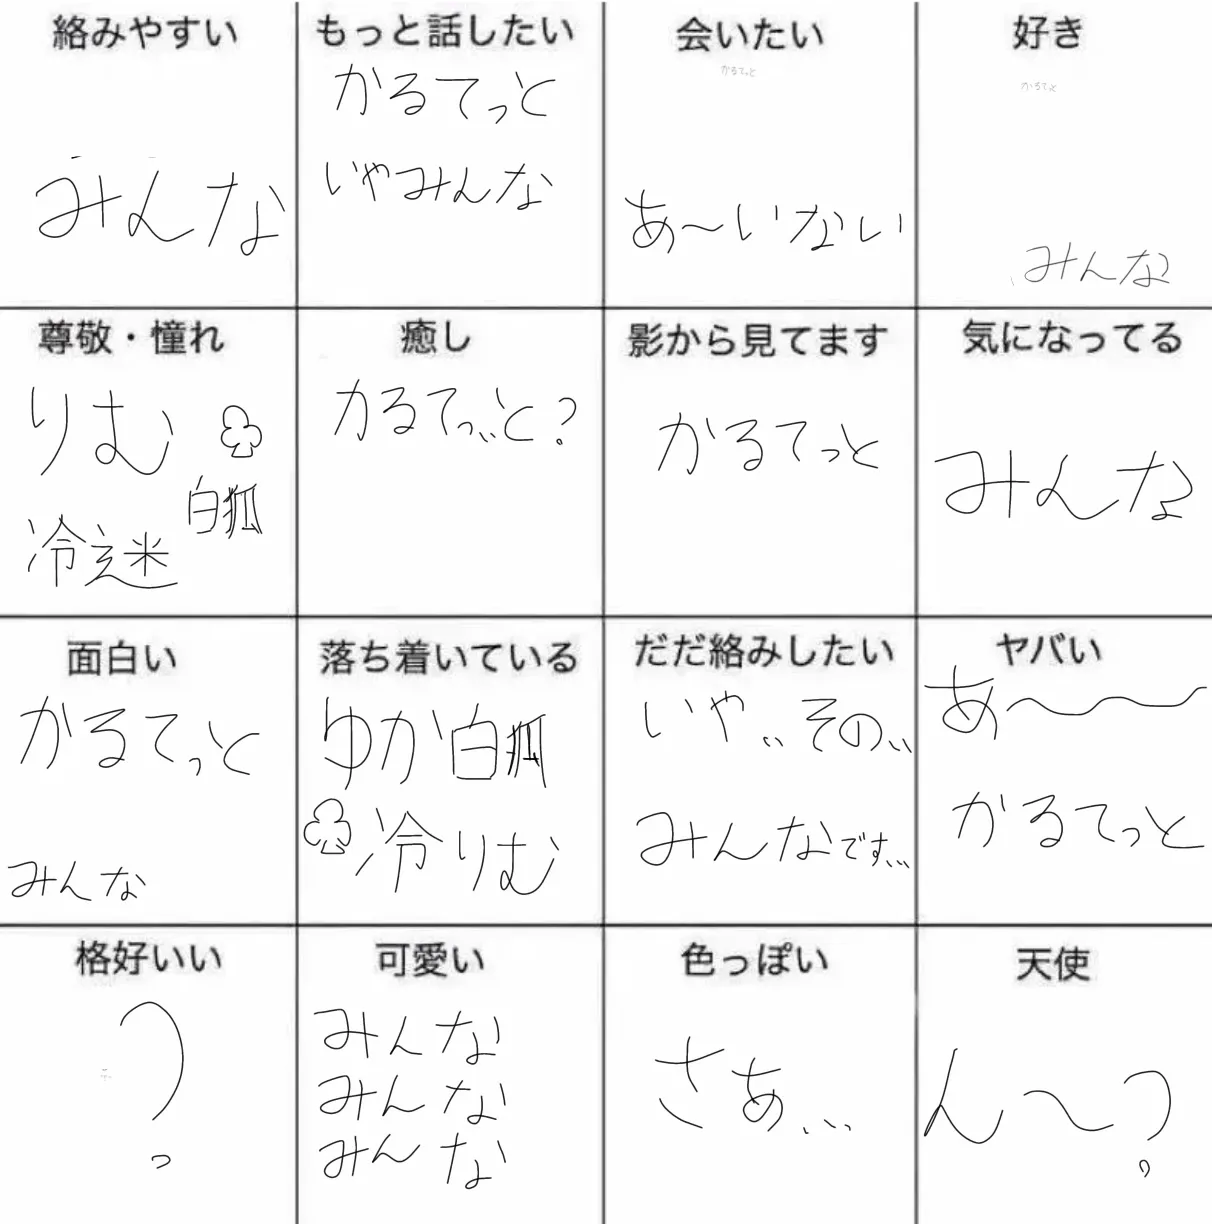 絡みやすい
みんな
もっと話したい
かるてっと
いやみんな
会いたい
かるてっと
あ〜いない
好き
かるてっと
みんな
尊敬・憧れ
りむ♣
白狐
冷迷
癒し
かるてっ…と?
影から見てます
かるてっと
気になってる
みんな
面白い
かるてっと
みんな
落ち着いている
ゆか白狐
♣冷りむ
だだ絡みしたい
いや…その…
みんなです…
ヤバい
あ〜〜
かるてっと
格好いい
?
可愛い
みんな
みんな
みんな
色っぽい
さあ…
天使
ん〜?